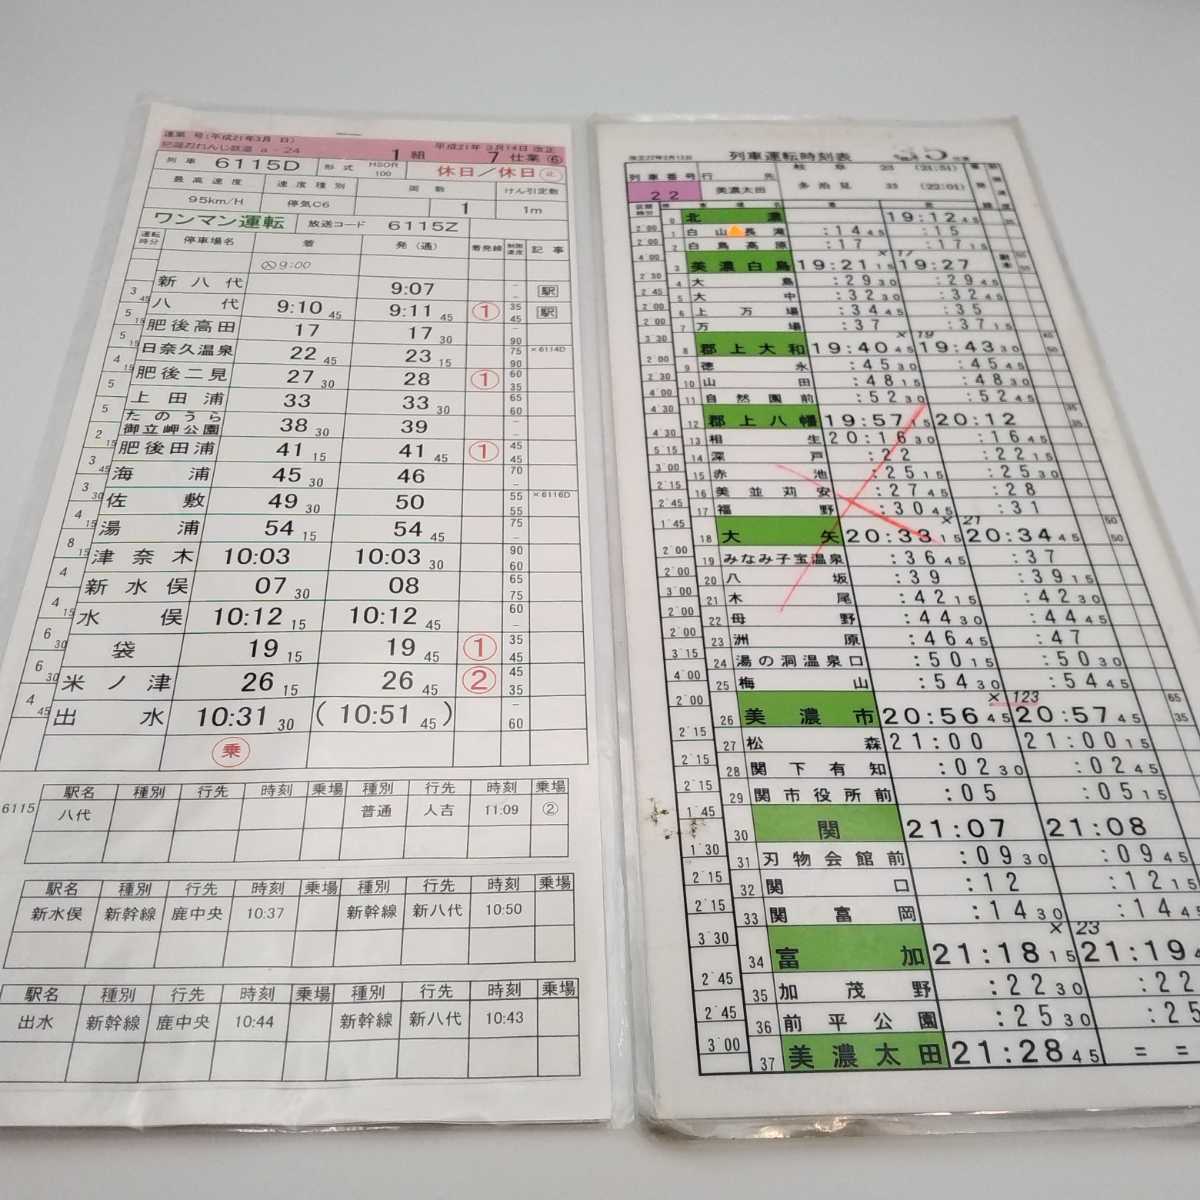 運業 号(平成21年3月 日)
平成21年 3月14日 改正
肥薩おれんじ鉄道 a-24 1組 7 仕業⑥
列車 6115D 形式 HSOR 100 休日/休日
最高速度 速度種別 両数 けん引定数
95km/H 停気C6 1 1m
ワンマン運転 放送コード 6115Z
運転時分 停車場名 着 発(通) 着発線 制限速度 記事
9:00
新八代 9:07 駅
3 45 八代 9:10 45 9:11 45 ① 35 45 駅
5 肥後高田 17 17 30 90
5 15 日奈久温泉 22 45 23 15 75 90 ×6114D
4 肥後二見 27 30 28 ① 60 35
5 上田浦 33 33 30 65 60
5 たのうら御立岬公園 38 30 39
2 15 肥後田浦 41 15 41 45 ① 45 45
3 海浦 45 30 46 70
3 30 佐敷 49 30 50 55 55 ×6116D
4 湯浦 54 15 54 45 75
8 15 津奈木 10:03 10:03 30 90 60
4 新水俣 07 30 08 65 75
4 15 水俣 10:12 15 10:12 45 60
6 30 袋 19 15 19 45 ① 35 45
6 30 米ノ津 26 15 26 45 ② 45 35
4 45 出水 10:31 30 (10:51 45) 60
乗
駅名 種別 行先 時刻 乗場 種別 行先 時刻 乗場
6115 八代 普通 人吉 11:09 ②
駅名 種別 行先 時刻 乗場 種別 行先 時刻 乗場
新水俣 新幹線 鹿中央 10:37 新幹線 新八代 10:50
駅名 種別 行先 時刻 乗場 種別 行先 時刻 乗場
出水 新幹線 鹿中央 10:44 新幹線 新八代 10:43
改正22年2月13日 列車運転時刻表 5
列車番号 行先 23 (21:51)
22 美濃太田 33 (22:01)
0 北濃 19:12 45
2'00 1 白山長滝 :14 45 :15
2'00 2 白鳥高原 :17 :17 15
×17
4'00 3 美濃白鳥 19:21 15 19:27
2'30 4 大島 :29 30 :29 45
2'45 5 大中 :32 30 :32 45
2'00 6 上万場 :34 45 :35
2'00 7 万場 :37 :37 15
×19
3'30 8 郡上大和 19:40 45 19:43 30
9 徳永 :45 30 :45 45
10 山田 :48 15 :48 30
4'00 11 自然園前 :52 30 :52 45
4'30 12 郡上八幡 19:57 15 20:12
4'30 13 相生 20:16 30 :16 45
5'15 14 深戸 :22 :22 15
3'00 15 赤池 :25 15 :25 30
2'15 16 美並苅安 :27 45 :28
2'45 17 福野 :30 45 :31
×21
1'45 18 大矢 20:33 15 20:34 45
2'00 19 みなみ子宝温泉 :36 45 :37
2'00 20 八坂 :39 :39 15
3'00 21 木尾 :42 15 :42 30
2'00 22 母野 :44 30 :44 45
2'00 23 洲原 :46 45 :47
3'15 24 湯の洞温泉口 :50 15 :50 30
4'00 25 梅山 :54 30 :54 45
×123
2'00 26 美濃市 20:56 45 20:57 45
2'15 27 松森 21:00 21:00 15
2'15 28 関下有知 :02 30 :02 45
2'15 29 関市役所前 :05 :05 15
1'45 30 関 21:07 21:08
1'30 31 刃物会館前 :09 30 :09 45
2'15 32 関口 :12 :12 15
2'15 33 関富岡 :14 30 :14 45
×23
3'30 34 富加 21:18 15 21:19 4
2'45 35 加茂野 :22 30 :22
2'45 36 前平公園 :25 30 :25
3'00 37 美濃太田 21:28 45 = =